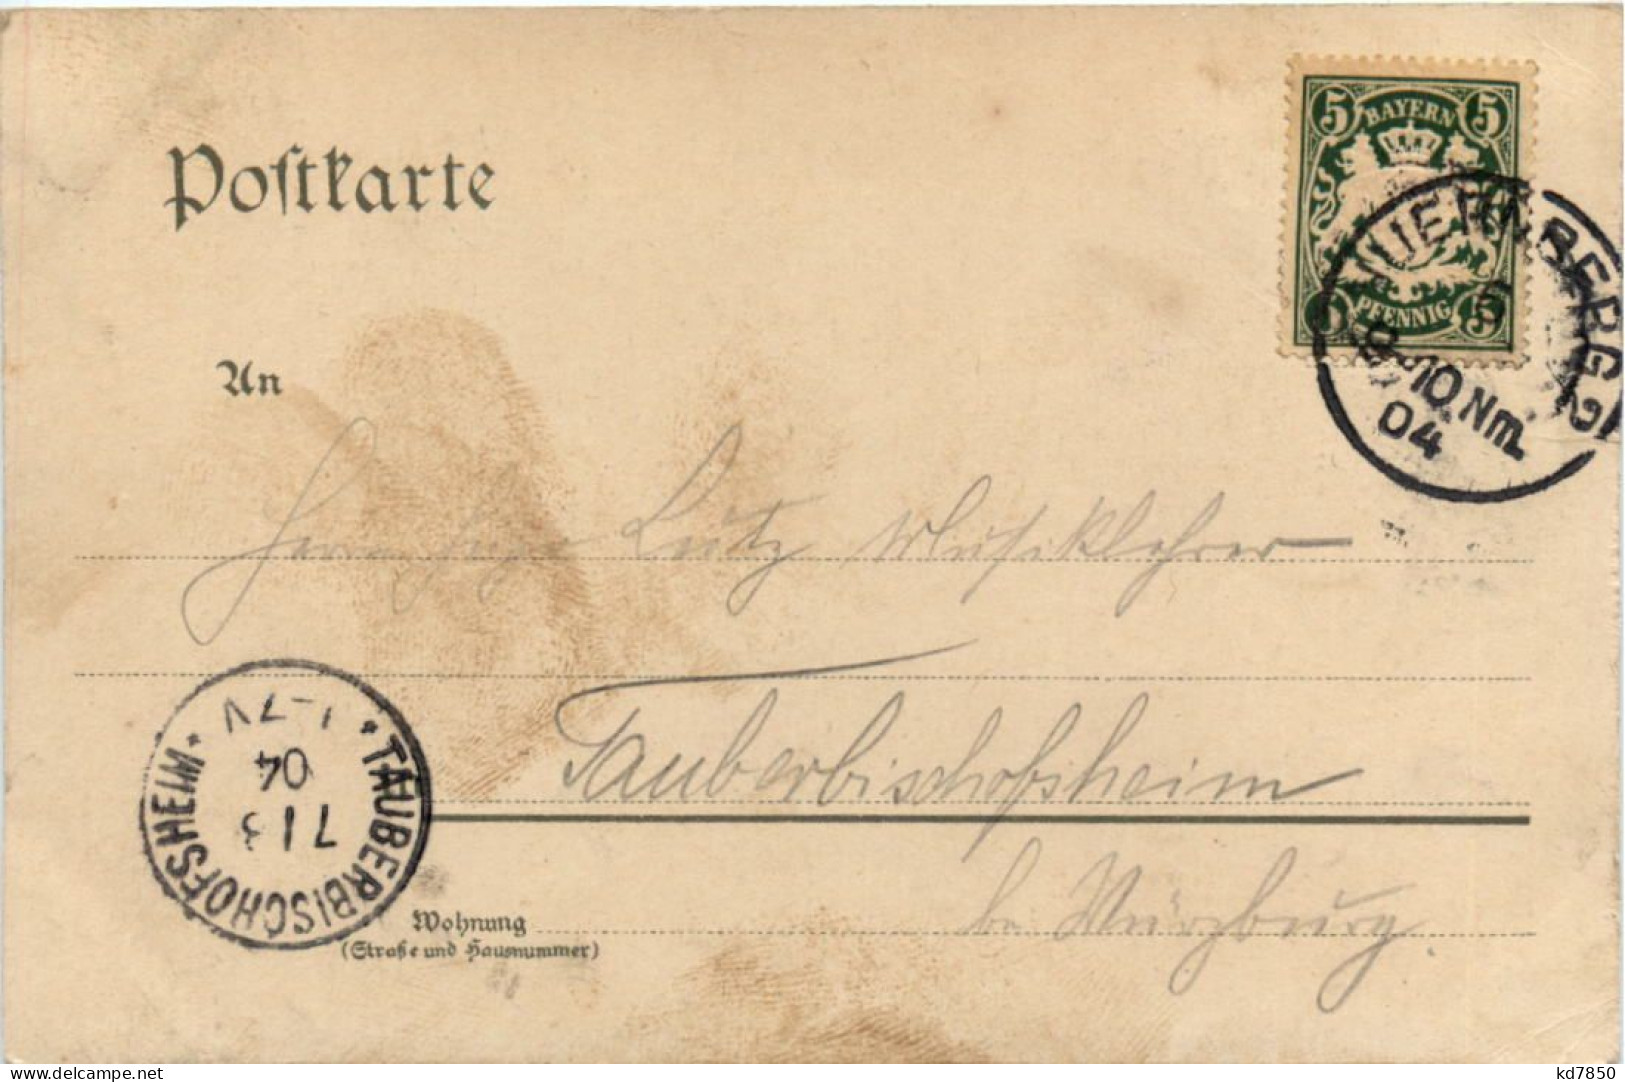 Postkarte
5 BAYERN 5
PFENNIG 5
NUERNBERG 2
6
8-10 Nm.
04
An
Herrn Hugo Lutz Musiklehrer
Tauberbischofsheim
TAUBERBISCHOFSHEIM
7 | 3
04
1-7V
Wohnung
(Straße und Hausnummer)
bei Würzburg.
www.delcampe.net
kd7850